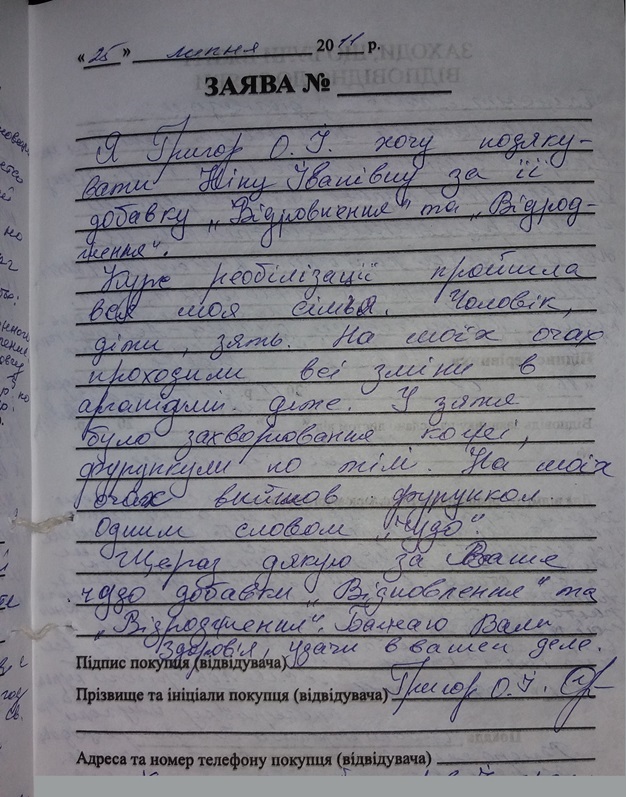 « 25 » липня 2011 р.
ЗАЯВА №
Я Григор О. І. хочу подяку-
вати Ніну Іванівну за її
добавку „Відровнення" та „Відрод-
ження".
Курс реобілізації пройшла
вся моя сімья. Чоловік,
діти, зять. На моїх очах
проходили всі зміни в
організмі діже. У зятя
було захворювання кожі,
фурункули по тілі. На моїх
очах вийшов фурункол
Одним словом „Чудо".
Щераз дякую за Ваше
чудо добавки „Відновлення" та
„Відродження". Бажаю Вам
Здоровья, удачи в вашем деле.
Підпис покупця (відвідувача)
Прізвище та ініціали покупця (відвідувача) Григор О. І.
Адреса та номер телефону покупця (відвідувача)